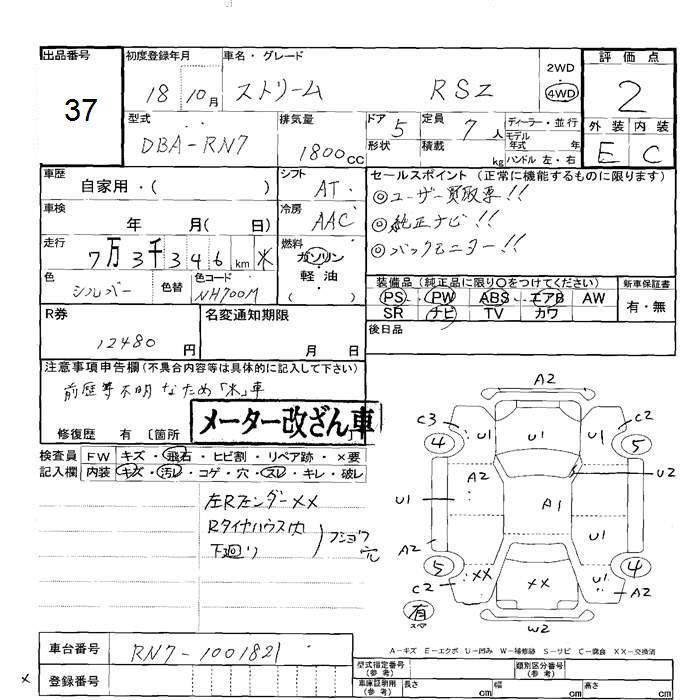 出品番号 初度登録年月 車名・グレード 2WD 評価点
37 18 10月 ストリーム RSZ ・ 4WD 2
型式 排気量 ドア 定員 ディーラー・並行 外装 内装
DBA-RN7 1800cc 5 7人 モデル年式 年 E C
形状 積載 kg ハンドル 左・右
車歴 シフト セールスポイント(正常に機能するものに限ります)
自家用・( ) AT ◎ユーザー買取車!!
車検 冷房 ◎純正ナビ!!
年 月( 日) AAC ◎バックモニター!!
走行 燃料
7万3千346km ※ ガソリン・軽油 ( )
色 色替 色コード 装備品(純正品に限り○をつけてください) 新車保証書
シルバー NH700M PS PW ABS エアB AW 有・無
SR ナビ TV カワ
R券 名変通知期限 後日品
12480円 月 日
注意事項申告欄(不具合内容等は具体的に記入して下さい)
前歴等不明なため「※」車
メーター改ざん車
修復歴 有 〔箇所
検査員記入欄 FW キズ・飛石・ヒビ割・リペア跡・×要
内装 キズ・汚レ・コゲ・穴・スレ・キレ・破レ
左Rフェンダー××
Rタイヤハウス内
下廻り
フショク穴
A2
C3 U1 U1 U1 C2
4 5
A2 U2
U1 A1
U1
A2
5 ×× ×× U1 4
C2 A2
有 スペア
W2
A-キズ E-エクボ U-凹み W-補修跡 S-サビ C-腐食 XX-交換済
車台番号 RN7-1001821 型式指定番号(参考) 類別区分番号(参考)
× 登録番号 車庫証明用(参考) 長さ cm 幅 cm 高さ cm